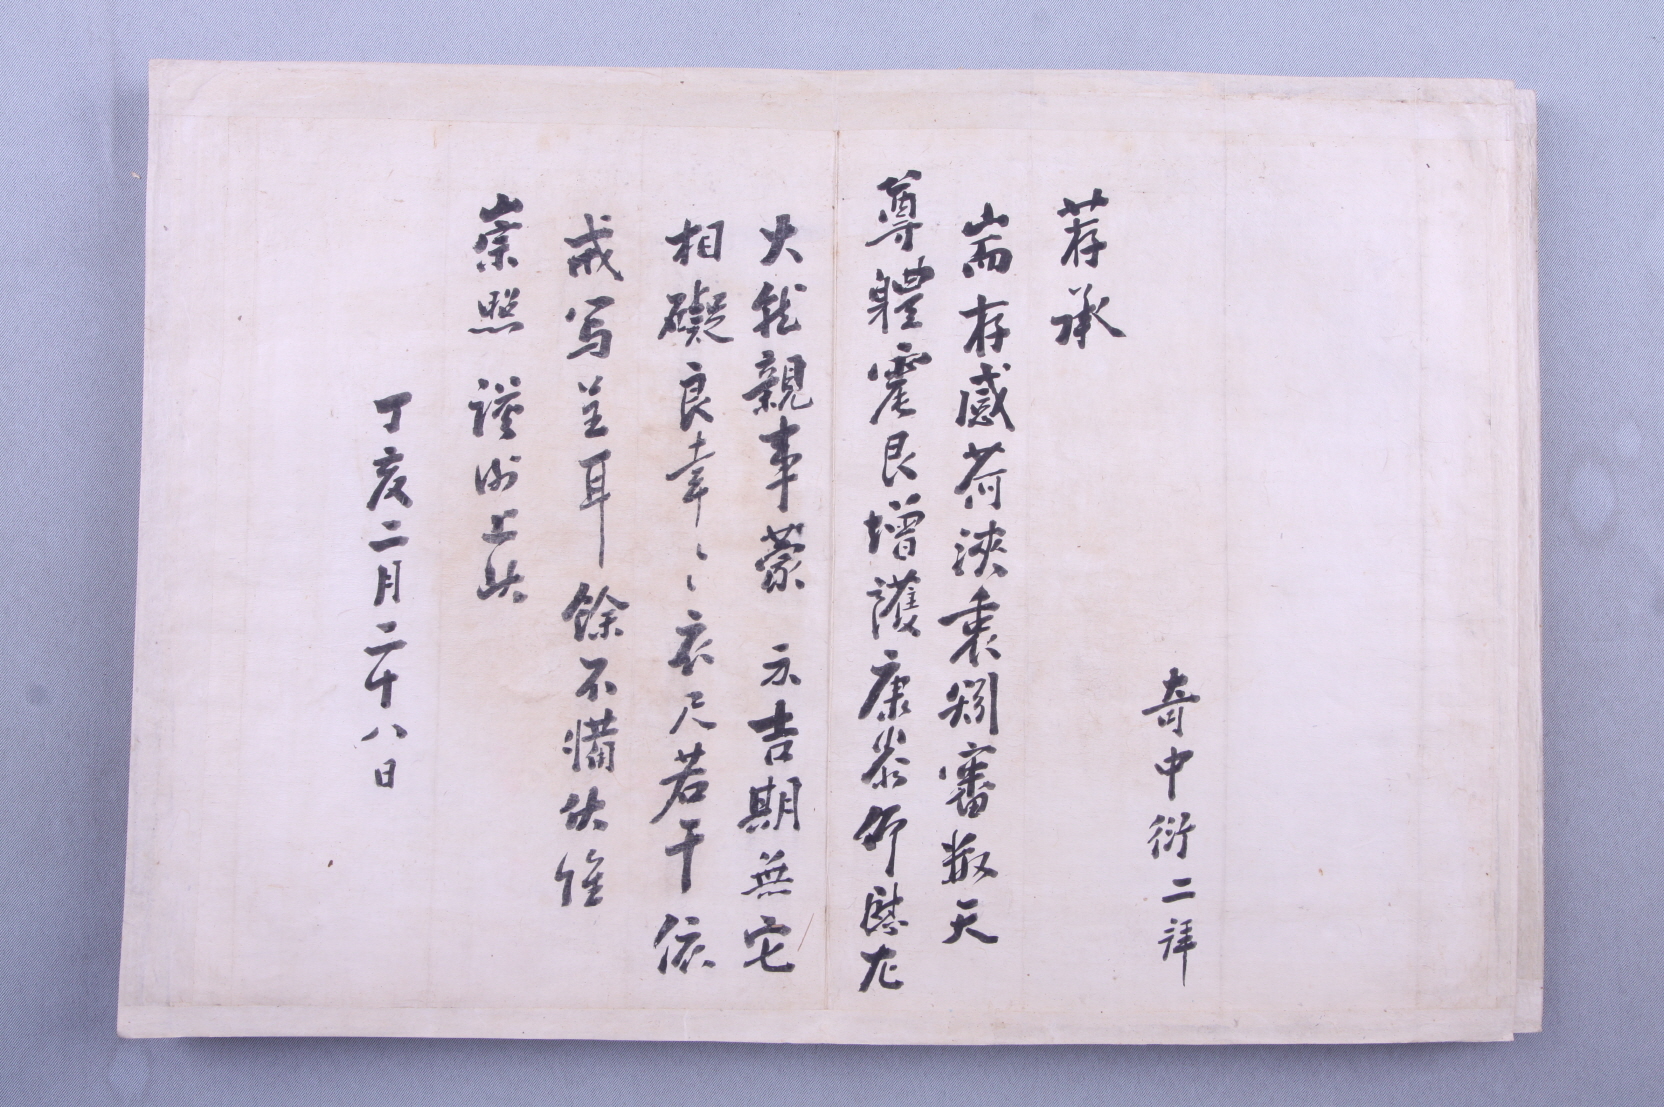 奇中衍二拜
荐承
耑存感荷浹衷矧審天
尊體震艮增護康泰仰慰尤
大就親事蒙 示吉期無它
相礙良幸〻〻衣尺若干依
戒写呈耳餘不備伏惟
崇照 謹謝上狀
丁亥二月二十八日